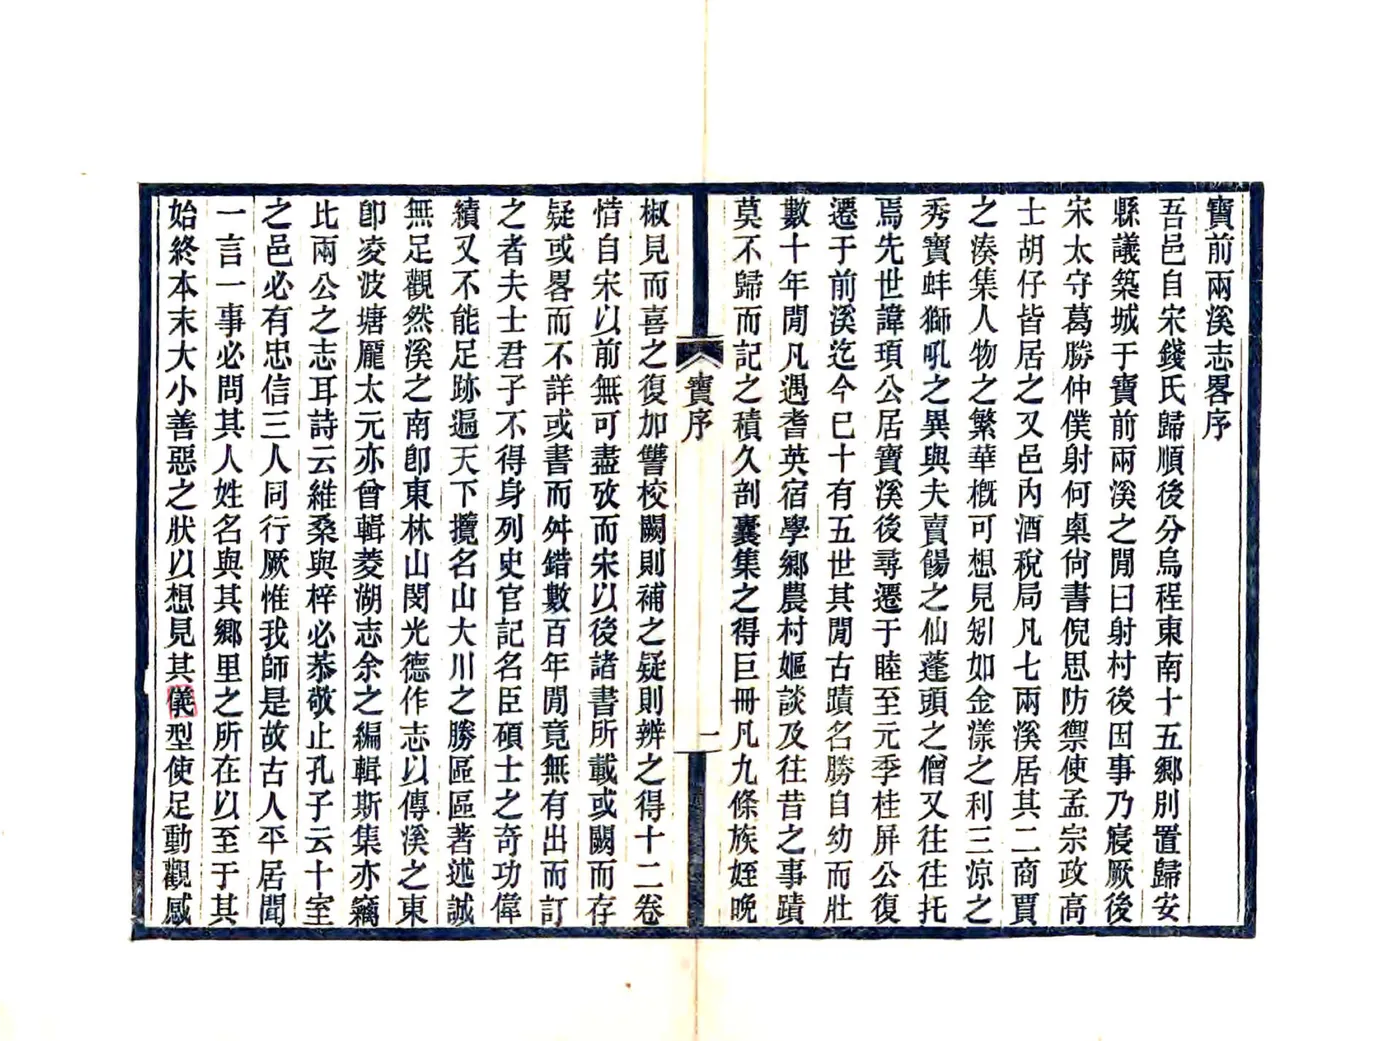 寶前兩溪志畧序
吾邑自宋錢氏歸順後分烏程東南十五鄉別置歸安
縣議築城于寶前兩溪之閒曰射村後因事乃寢厥後
宋太守葛勝仲僕射何㮚尙書倪思防禦使孟宗政高
士胡仔皆居之又邑內酒稅局凡七兩溪居其二商賈
之湊集人物之繁華槪可想見矧如金漾之利三涼之
秀寶蚌獅吼之異與夫賣餳之仙蓬頭之僧又往往托
焉先世諱頊公居寶溪後尋遷于睦至元季桂屏公復
遷于前溪迄今已十有五世其閒古蹟名勝自幼而壯
數十年閒凡遇耆英宿學鄉農村嫗談及往昔之事蹟
莫不歸而記之積久剖囊集之得巨冊凡九條族姪晚
寶序
一
椒見而喜之復加讐校闕則補之疑則辨之得十二卷
惜自宋以前無可盡攷而宋以後諸書所載或闕而存
疑或畧而不詳或書而舛錯數百年閒竟無有出而訂
之者夫士君子不得身列史官記名臣碩士之奇功偉
績又不能足跡遍天下攬名山大川之勝區區著述誠
無足觀然溪之南卽東林山閔光德作志以傳溪之東
卽凌波塘龎太元亦曾輯菱湖志余之編輯斯集亦竊
比兩公之志耳詩云維桑與梓必恭敬止孔子云十室
之邑必有忠信三人同行厥惟我師是故古人平居聞
一言一事必問其人姓名與其鄉里之所在以至于其
始終本末大小善惡之狀以想見其儀型使足動觀感